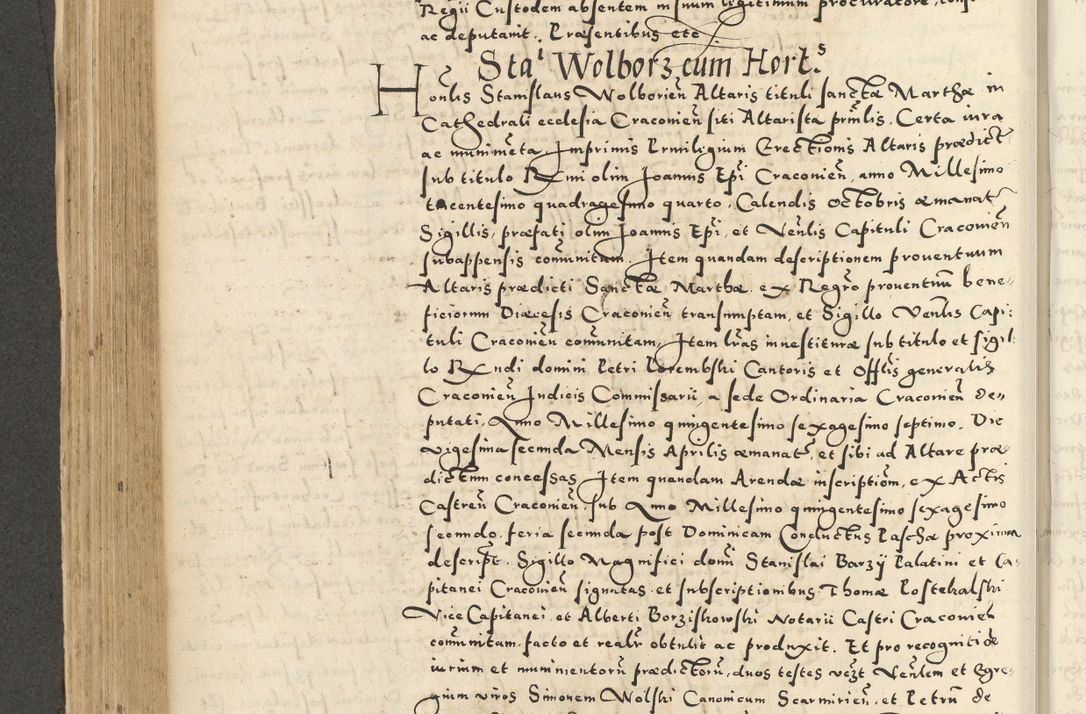 Regii Custodem absentem in suum legitimum procuratore, cons
ac deputavit. Præsentibus etc
Sta.i Wolborz cum Hort.s
Honlis Stanislaus Wolborień Altaris tituli sanctæ Marthæ in
Cathedrali ecclesia Cracovień siti Altarista prinlis. Certa iura
ac munimeta. Imprimis Privilegium Erectionis Altaris prædict
sub titulo Rmi olim Joannis Epi Cracovień, anno Millesimo
trecentesimo quadragesimo quarto, Calendis octobris æmanat
Sigillis, præfati olim Joannis Epi, et Venlis Capituli Cracovień
subappensis comunitam, Item quandam descriptionem proventuum
Altaris prædicti Sanctæ Marthæ ex Regro proventuum bene-
ficiorum Diæcesis Cracovień transumptam, et Sigillo Venlis Capi:
tuli Cracovień comunitam, Item lras investituræ sub titulo et sigil:
lo Rndi domini Petri Porembski Cantoris et Offlis generalis
Cracovień Judicis Commissarii, a sede Ordinaria Cracovień de-
putati, Anno Millesimo quingentesimo sexagesimo septimo. Die
vigesima secunda Mensis Aprilis æmanat, et sibi ad Altare præ
dictum concessas, Item quandam Arendæ inscriptiom, ex Actis
Castreń Cracovień, sub Anno Millesimo quingentesimo sexagesimo
secundo, feria secunda post Dominicam Conductus Paschæ proxima
descript. Sigillo Magnifici domi Stanislai Barzÿ Palatini et Ca-
pitanei Cracovień signatas et subscriptionibus Thomæ Kostehalski
Vice Capitanei, et Alberti Borziskowski Notarii Castri Cracovień
comunitam, facto et realr obtulit ac produxit. Et pro recognitioe
iurium et munimentoru prædictoru, duos testes vezt Venlem et Egre-
gium viros Simonem Wolski Canonicum Scarmirień, et Petru de